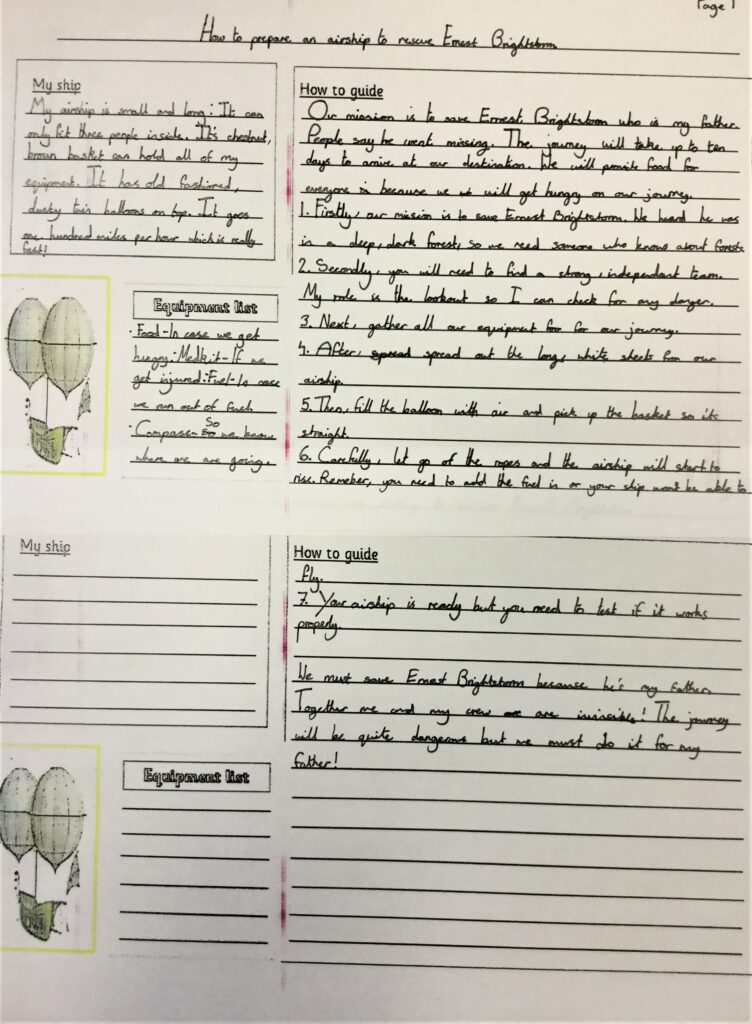 Page 1
How to prepare an airship to rescue Ernest Brightstorm
My ship
My airship is small and long. It can
only fit three people inside. It's chestnut,
brown basket can hold all of my
equipment. It has old fashioned,
dusky twin balloons on top. It goes
one hundred miles per hour which is really
fast!
Equipment list
· Food - In case we get
hungry · Medkit - If we
get injured · Fuel - In case
we run out of fuel.
So
· Compass - So we know
where we are going.
How to guide
Our mission is to save Ernest Brightstorm who is my father.
People say he went missing. The journey will take up to ten
days to arrive at our destination. We will provite food for
everyone is because we will get hungry on our journey.
1. Firstly, our mission is to save Ernest Brightstorm. We heard he was
in a deep, dark forest, so we need someone who knows about forests.
2. Secondly, you will need to find a strong, independant team.
My role is the lookout so I can check for any danger.
3. Next, gather all our equipment for for our journey.
4. After, spread spread out the long, white sheets from our
airship.
5. Then, fill the balloon with air and pick up the basket so its
straight.
6. Carefully, let go of the ropes and the airship will start to
rise. Remeber, you need to add the fuel in or your ship wont be able to
My ship
Equipment list
How to guide
fly.
7. Your airship is ready but you need to test if it works
properly.
We must save Ernest Brightstorm because he's my father.
Together me and my crew are are invincible! The journey
will be quite dangerous but we must do it for my
father!